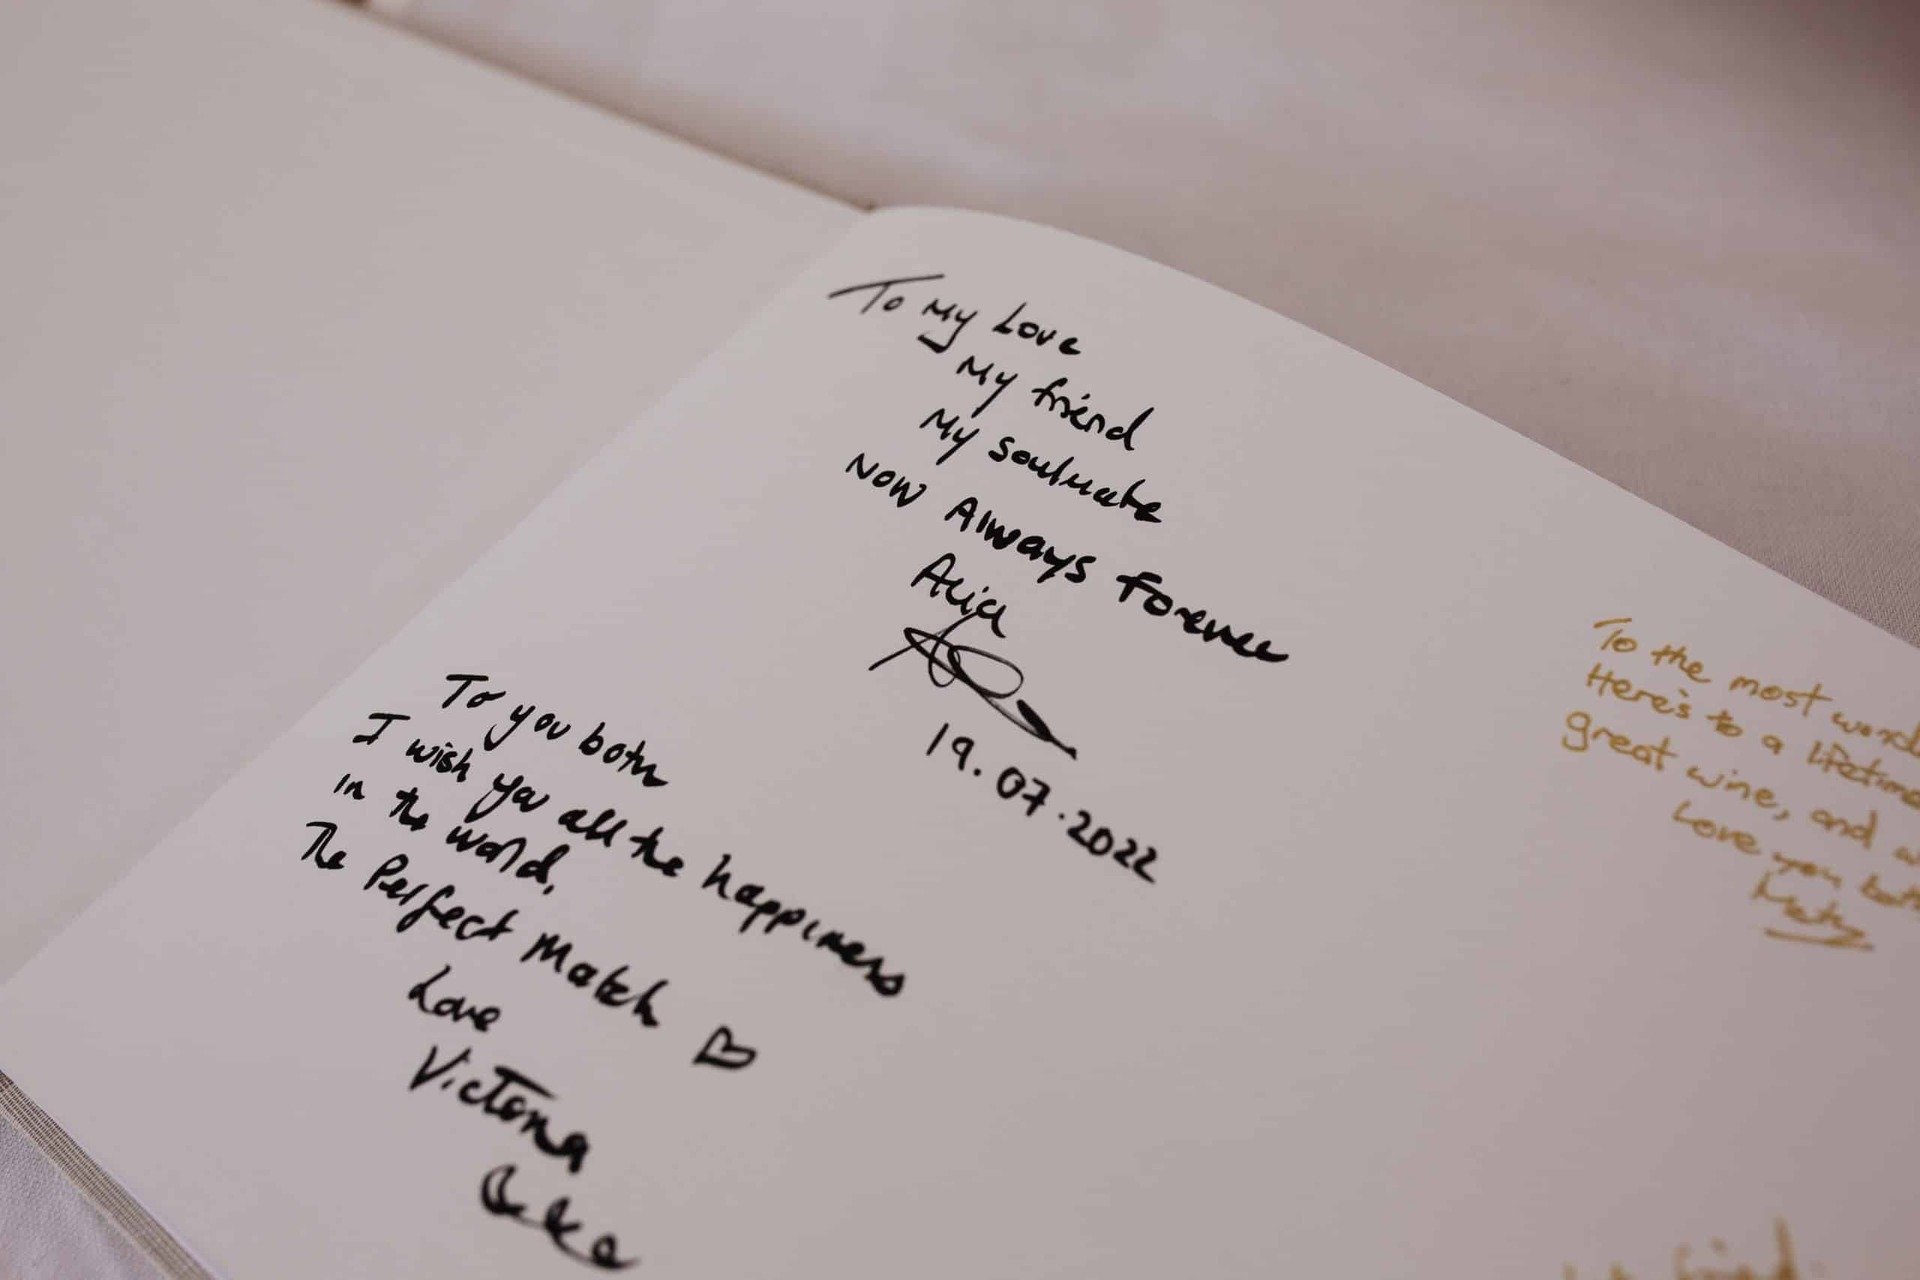 To My Love
My friend
My soulmate
Now Always Forever
Alia
19.07.2022
To you both
I wish you all the happiness
in the world,
The Perfect Match
Love
Victoria
To the most
Here's to a lifetime
great wine, and
Love you both